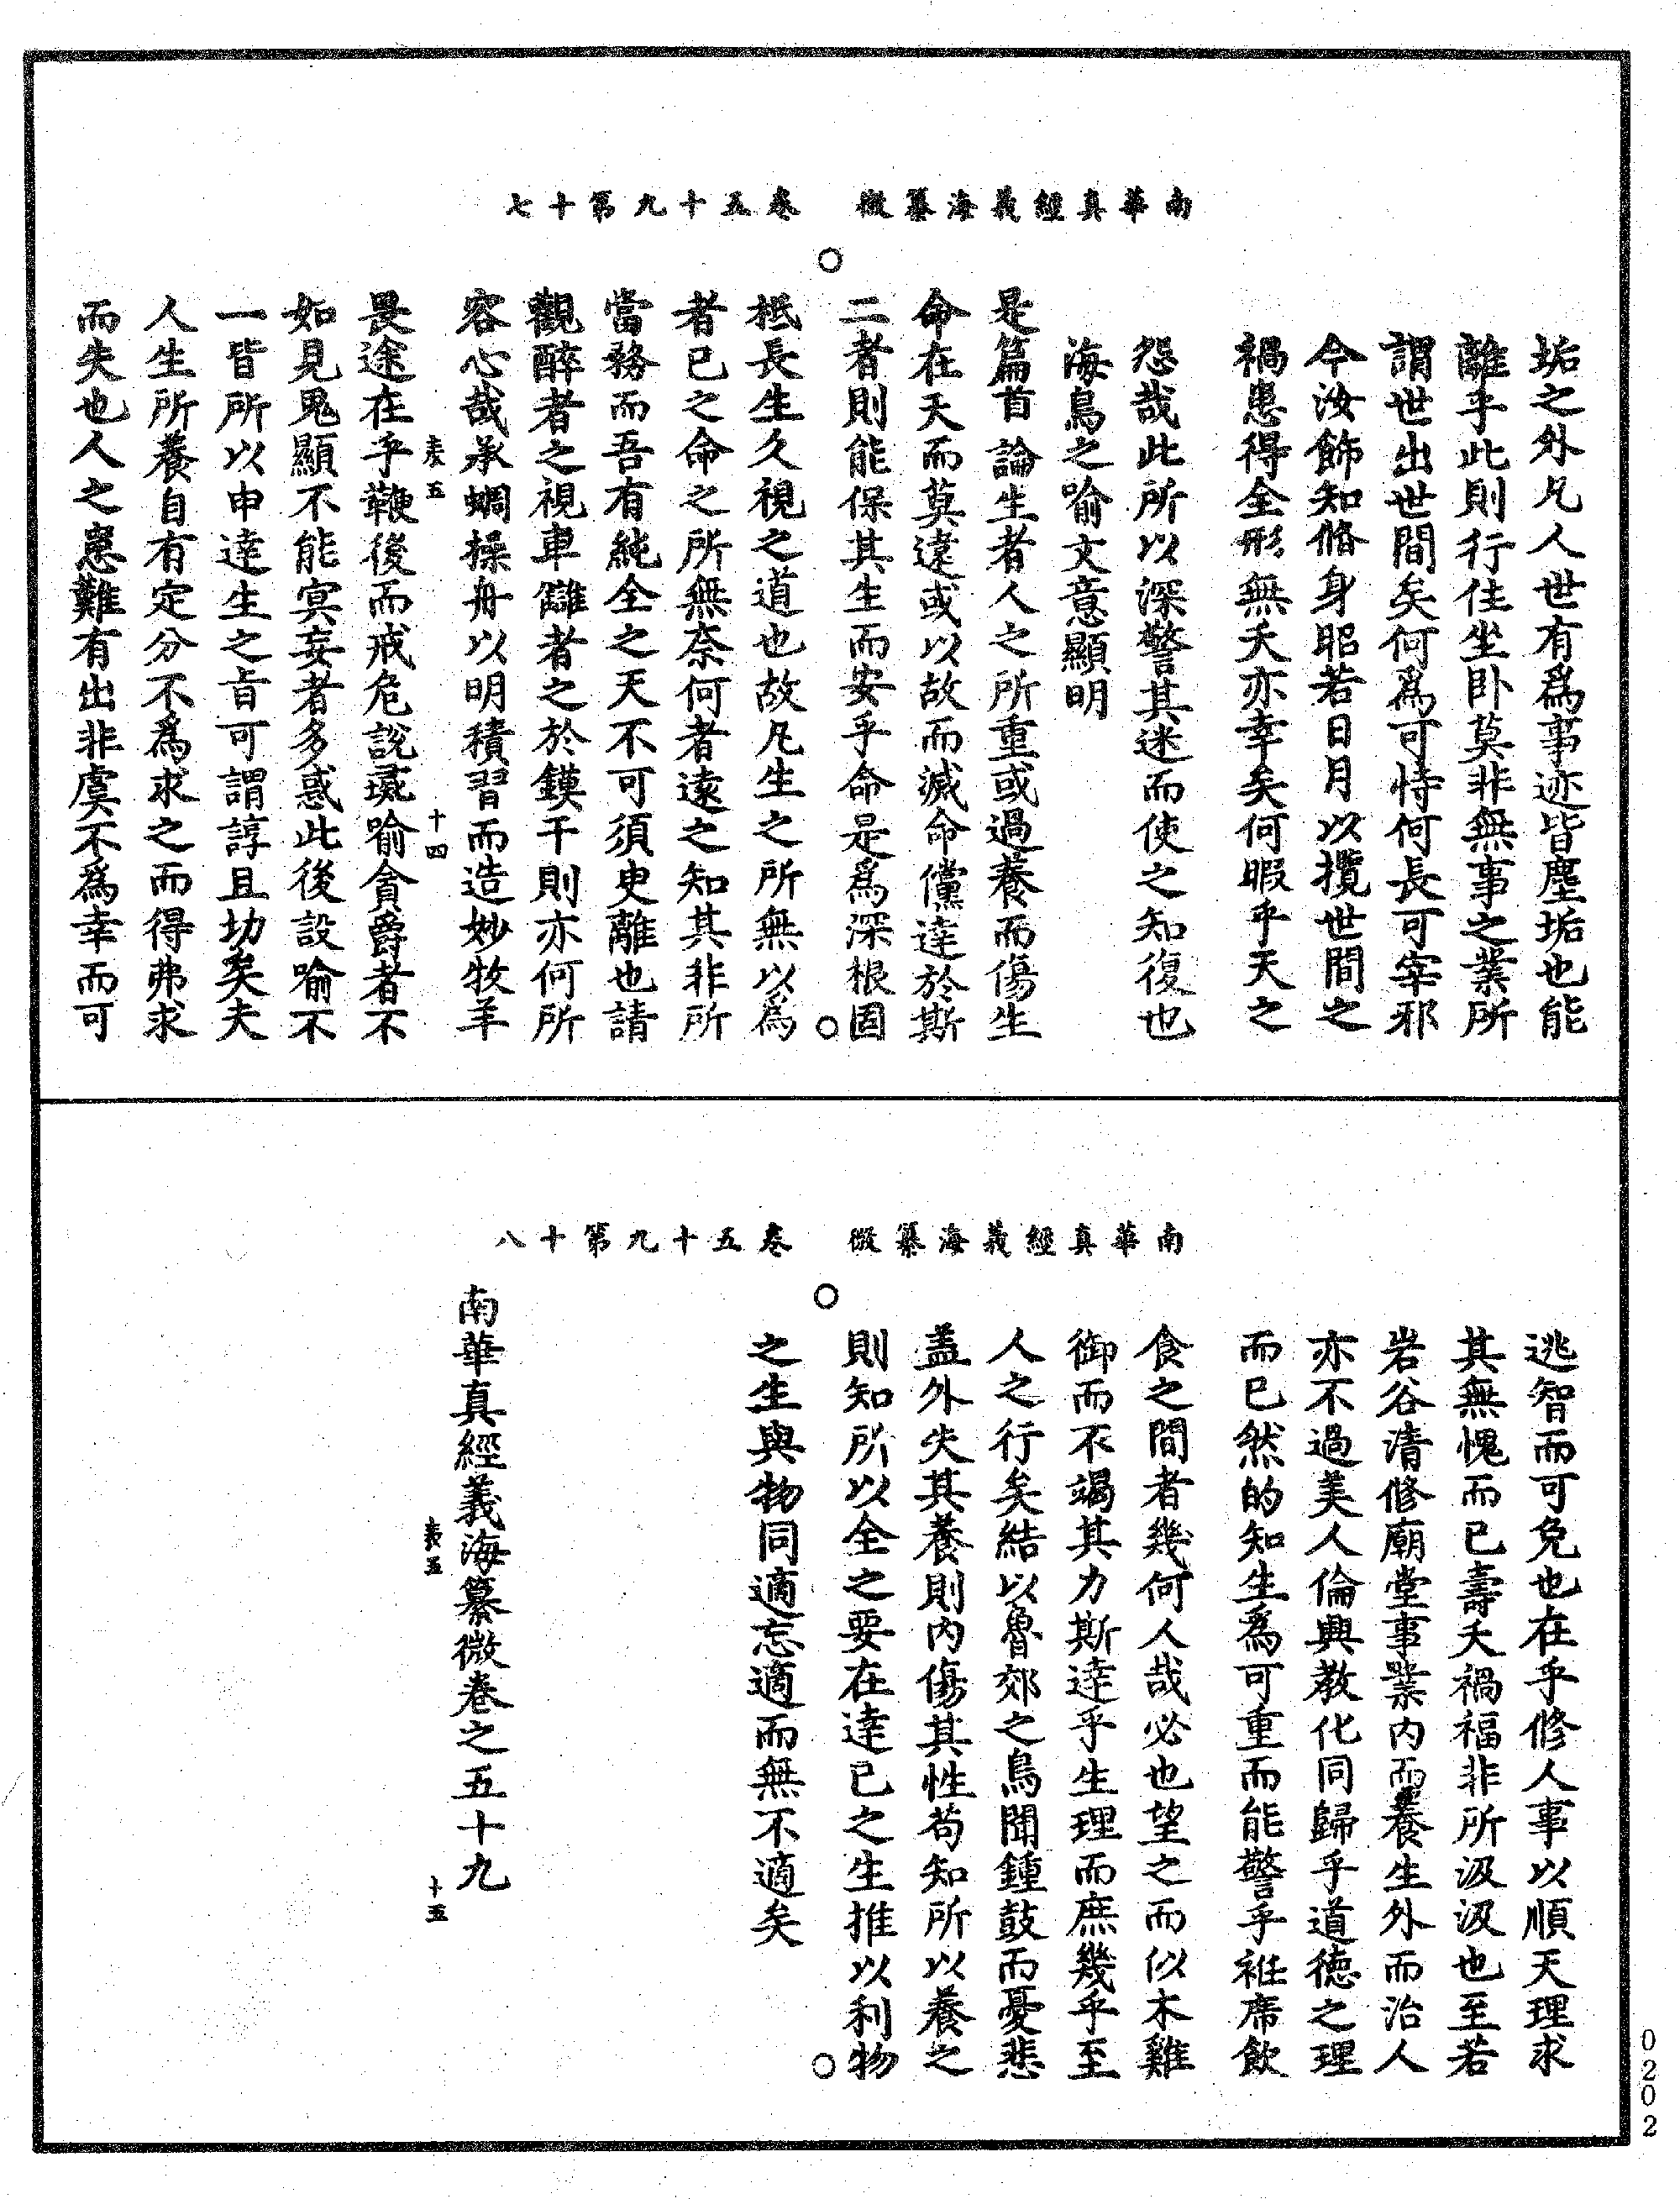 南華真經義海纂微　卷五十九第十七
垢之外凡人世有爲事迹皆塵垢也能
離乎此則行住坐卧莫非無事之業所
謂世出世間矣何爲可恃何長可宰邪
今汝飾知脩身昭若日月以攬世間之
禍患得全形無夭亦幸矣何暇乎天之
怨哉此所以深警其迷而使之知復也
海鳥之喻文意顯明
是篇首論生者人之所重或過養而傷生
命在天而莫違或以故而滅命儻達於斯
二者則能保其生而安乎命是爲深根固
柢長生久視之道也故凡生之所無以爲
者已之命之所無奈何者遠之知其非所
當務而吾有純全之天不可須臾離也請
觀醉者之視車讎者之於鏌干則亦何所
容心哉承蜩操舟以明積習而造妙牧羊
畏途在乎鞭後而戒危說彘喻貪爵者不
如見鬼顯不能㝠妄者多惑此後設喻不
一皆所以申達生之旨可謂諄且切矣夫
人生所養自有定分不爲求之而得弗求
而失也人之患難有出非虞不爲幸而可
表五
十四
南華真經義海纂微　卷五十九第十八
逃智而可免也在乎修人事以順天理求
其無愧而已壽夭禍福非所汲汲也至若
岩谷清修廟堂事業内而養生外而治人
亦不過美人倫興教化同歸乎道德之理
而已然的知生爲可重而能警乎袵席飲
食之間者幾何人哉必也望之而似木雞
御而不竭其力斯達乎生理而庶幾乎至
人之行矣結以魯郊之鳥聞鍾鼓而憂悲
盖外失其養則内傷其性苟知所以養之
則知所以全之要在達已之生推以利物
之生與物同適忘適而無不適矣
南華真經義海纂微卷之五十九
表五
十五
0202